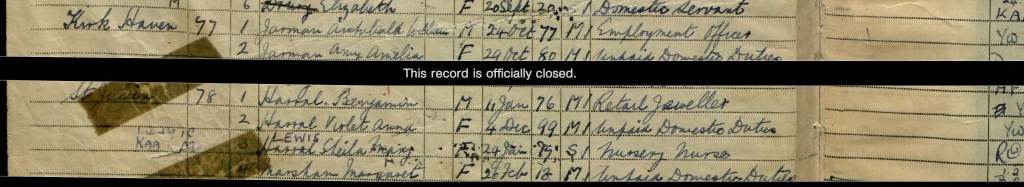 M 6 Drury Elizabeth F 20 Sept 20 S Domestic Servant
Kirk Haven 77 1 Jarman Archibald William M 24 Oct 77 M Employment Officer
2 Jarman Amy Amelia F 29 Oct 80 M Unpaid Domestic Duties
This record is officially closed.
78 1 Harral Benjamin M 11 Jan 76 M Retail Jeweller
2 Harral Violet Anna F 4 Dec 99 M Unpaid Domestic Duties
LEWIS
3 Harral Sheila Mary F 29 Jan S Nursery Nurse
Margaret F 26 Feb 13 M Unpaid Domestic Duties